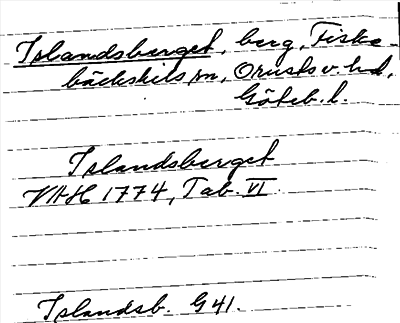 Islandsberget, berg, Fiske-
bäckskils sn, Orusts v. hd,
Göteb. l.
Islandsberget
VAH 1774, Tab. VI
Islandsb. G 41.